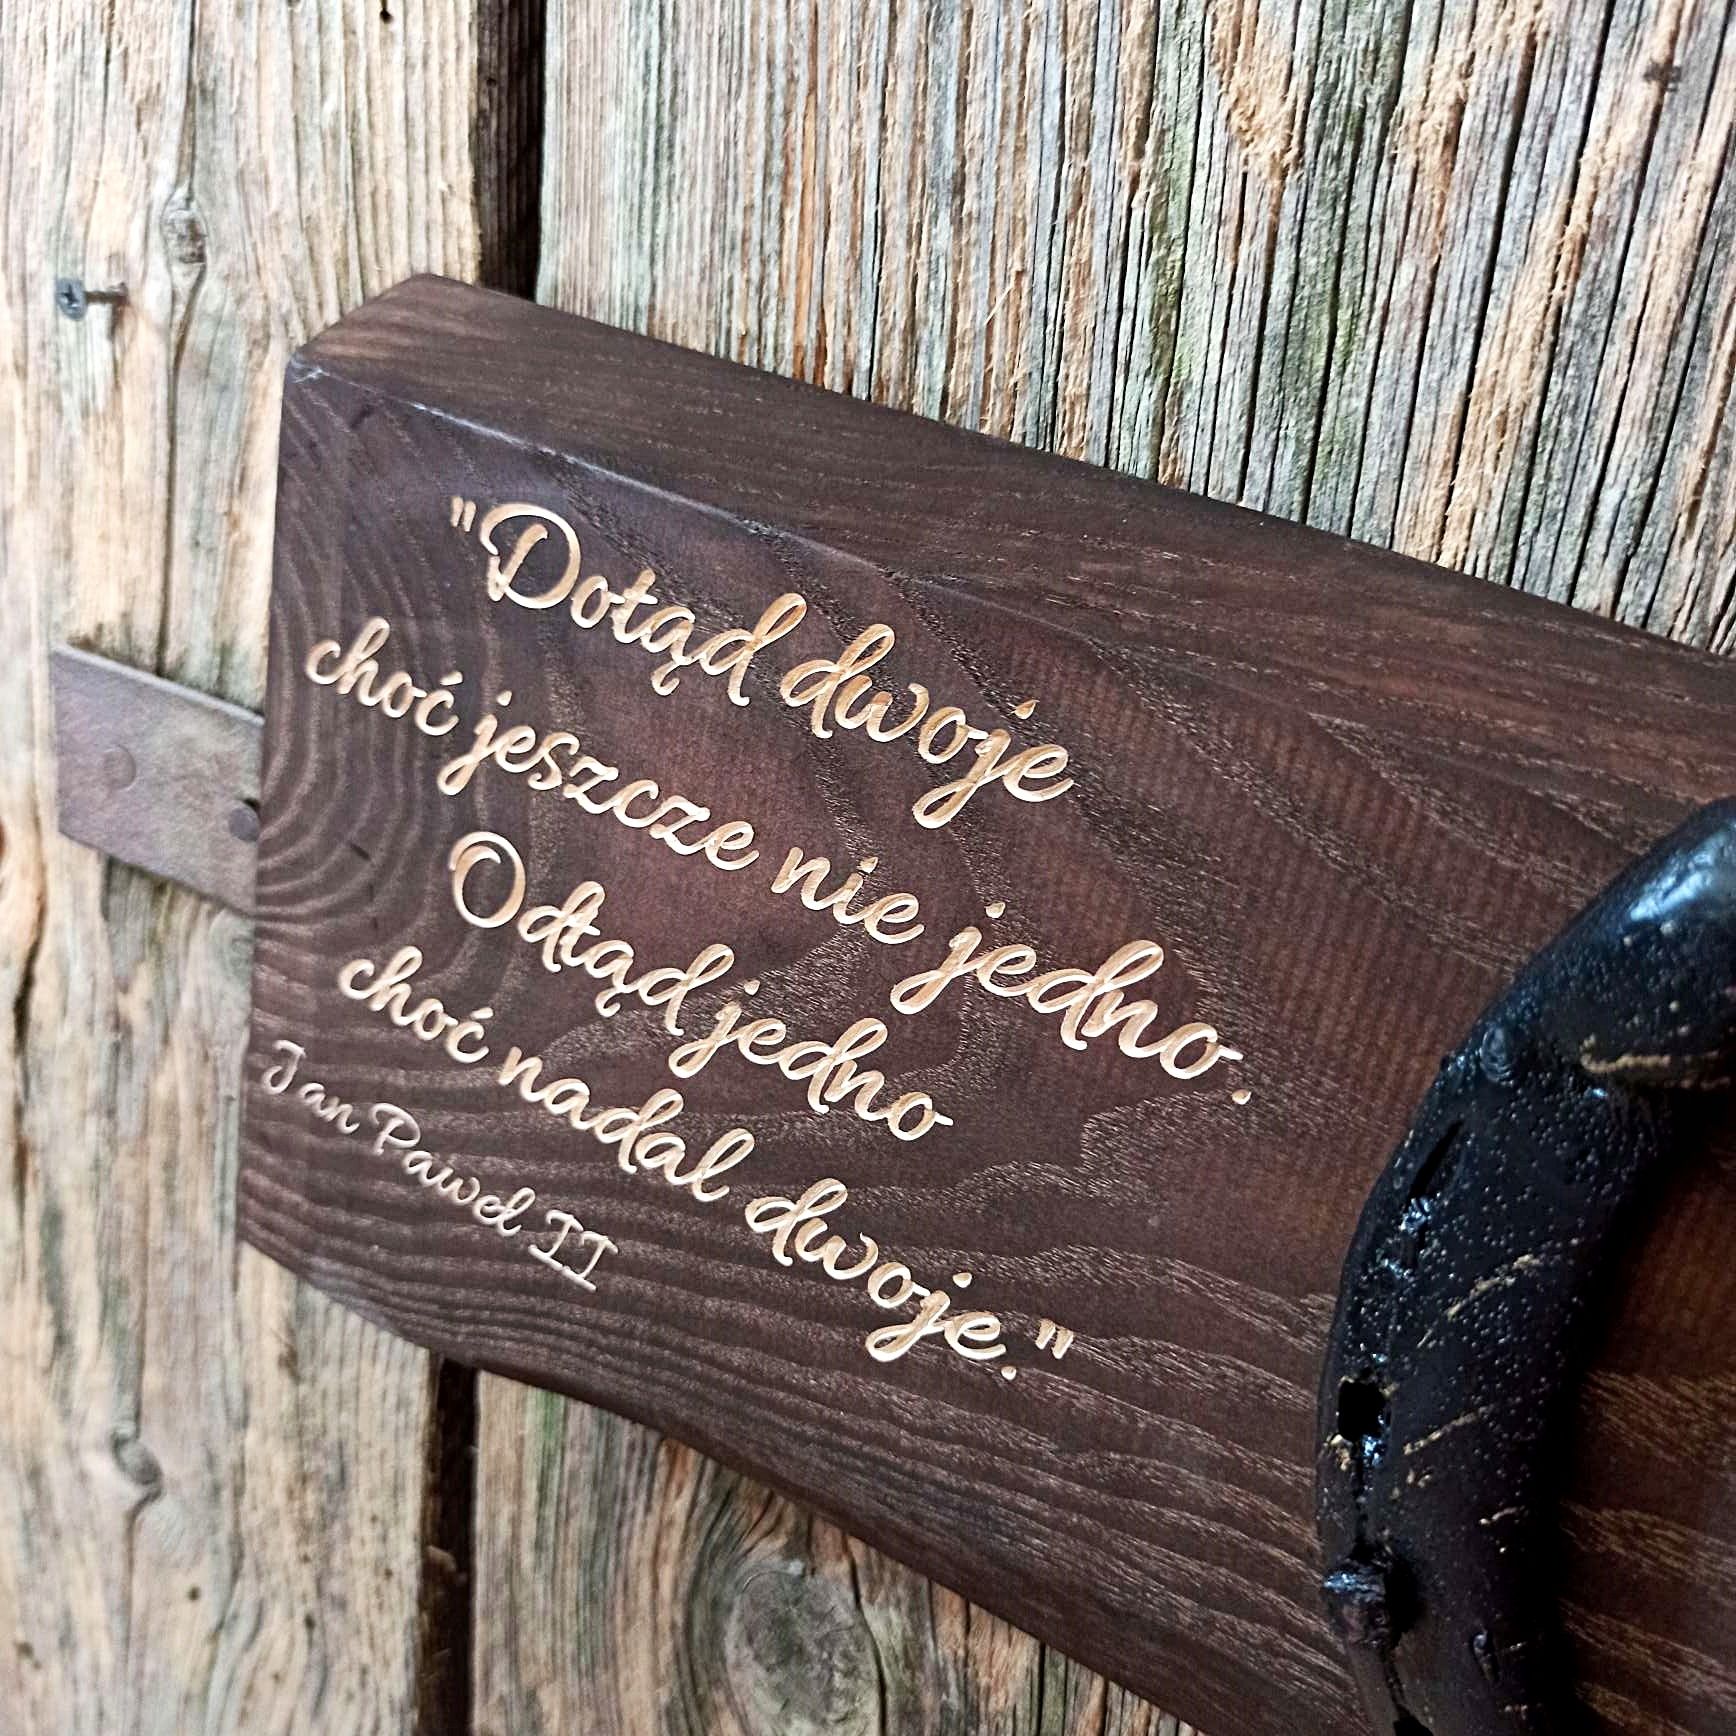 "Dotąd dwoje
choć jeszcze nie jedno.
Odtąd jedno
choć nadal dwoje."
Jan Paweł II